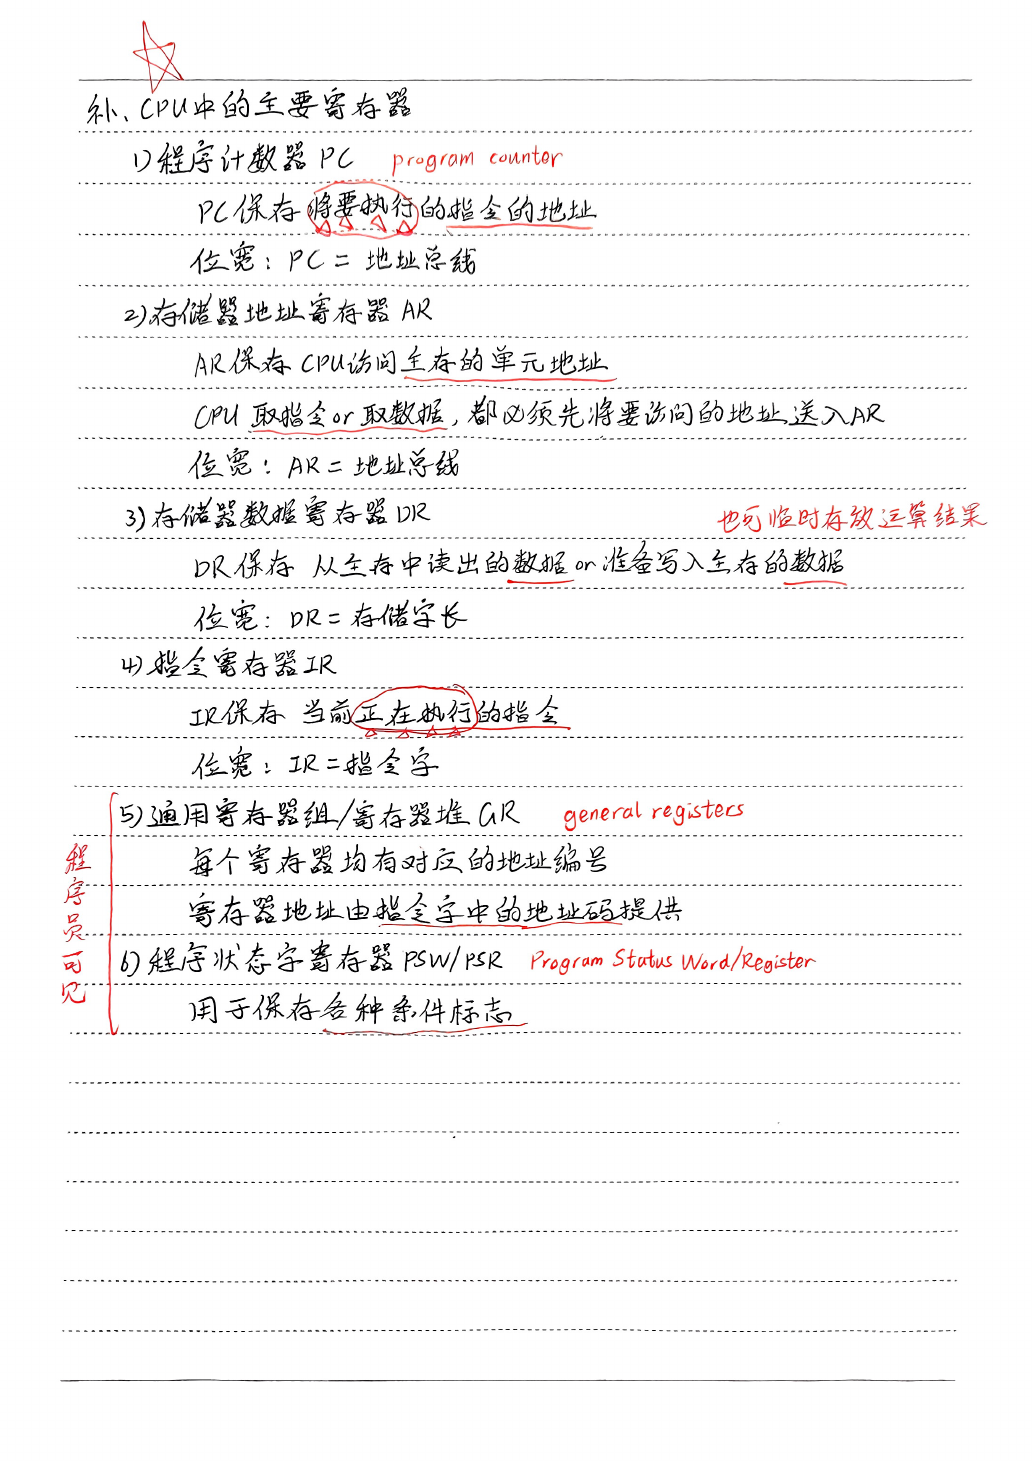 补、CPU中的主要寄存器
1)程序计数器 PC program counter
PC保存将要执行的指令的地址
位宽：PC = 地址总线
2)存储器地址寄存器 AR
AR保存 CPU访问主存的单元地址
CPU 取指令or取数据，都必须先将要访问的地址送入AR
位宽：AR = 地址总线
3)存储器数据寄存器DR
也可临时存放运算结果
DR保存 从主存中读出的数据or准备写入主存的数据
位宽：DR = 存储字长
4)指令寄存器IR
IR保存 当前正在执行的指令
位宽：IR = 指令字
程序员可见
5)通用寄存器组/寄存器堆 GR general registers
每个寄存器均有对应的地址编号
寄存器地址由指令字中的地址码提供
6)程序状态字寄存器 PSW/PSR Program Status Word/Register
用于保存各种条件标志